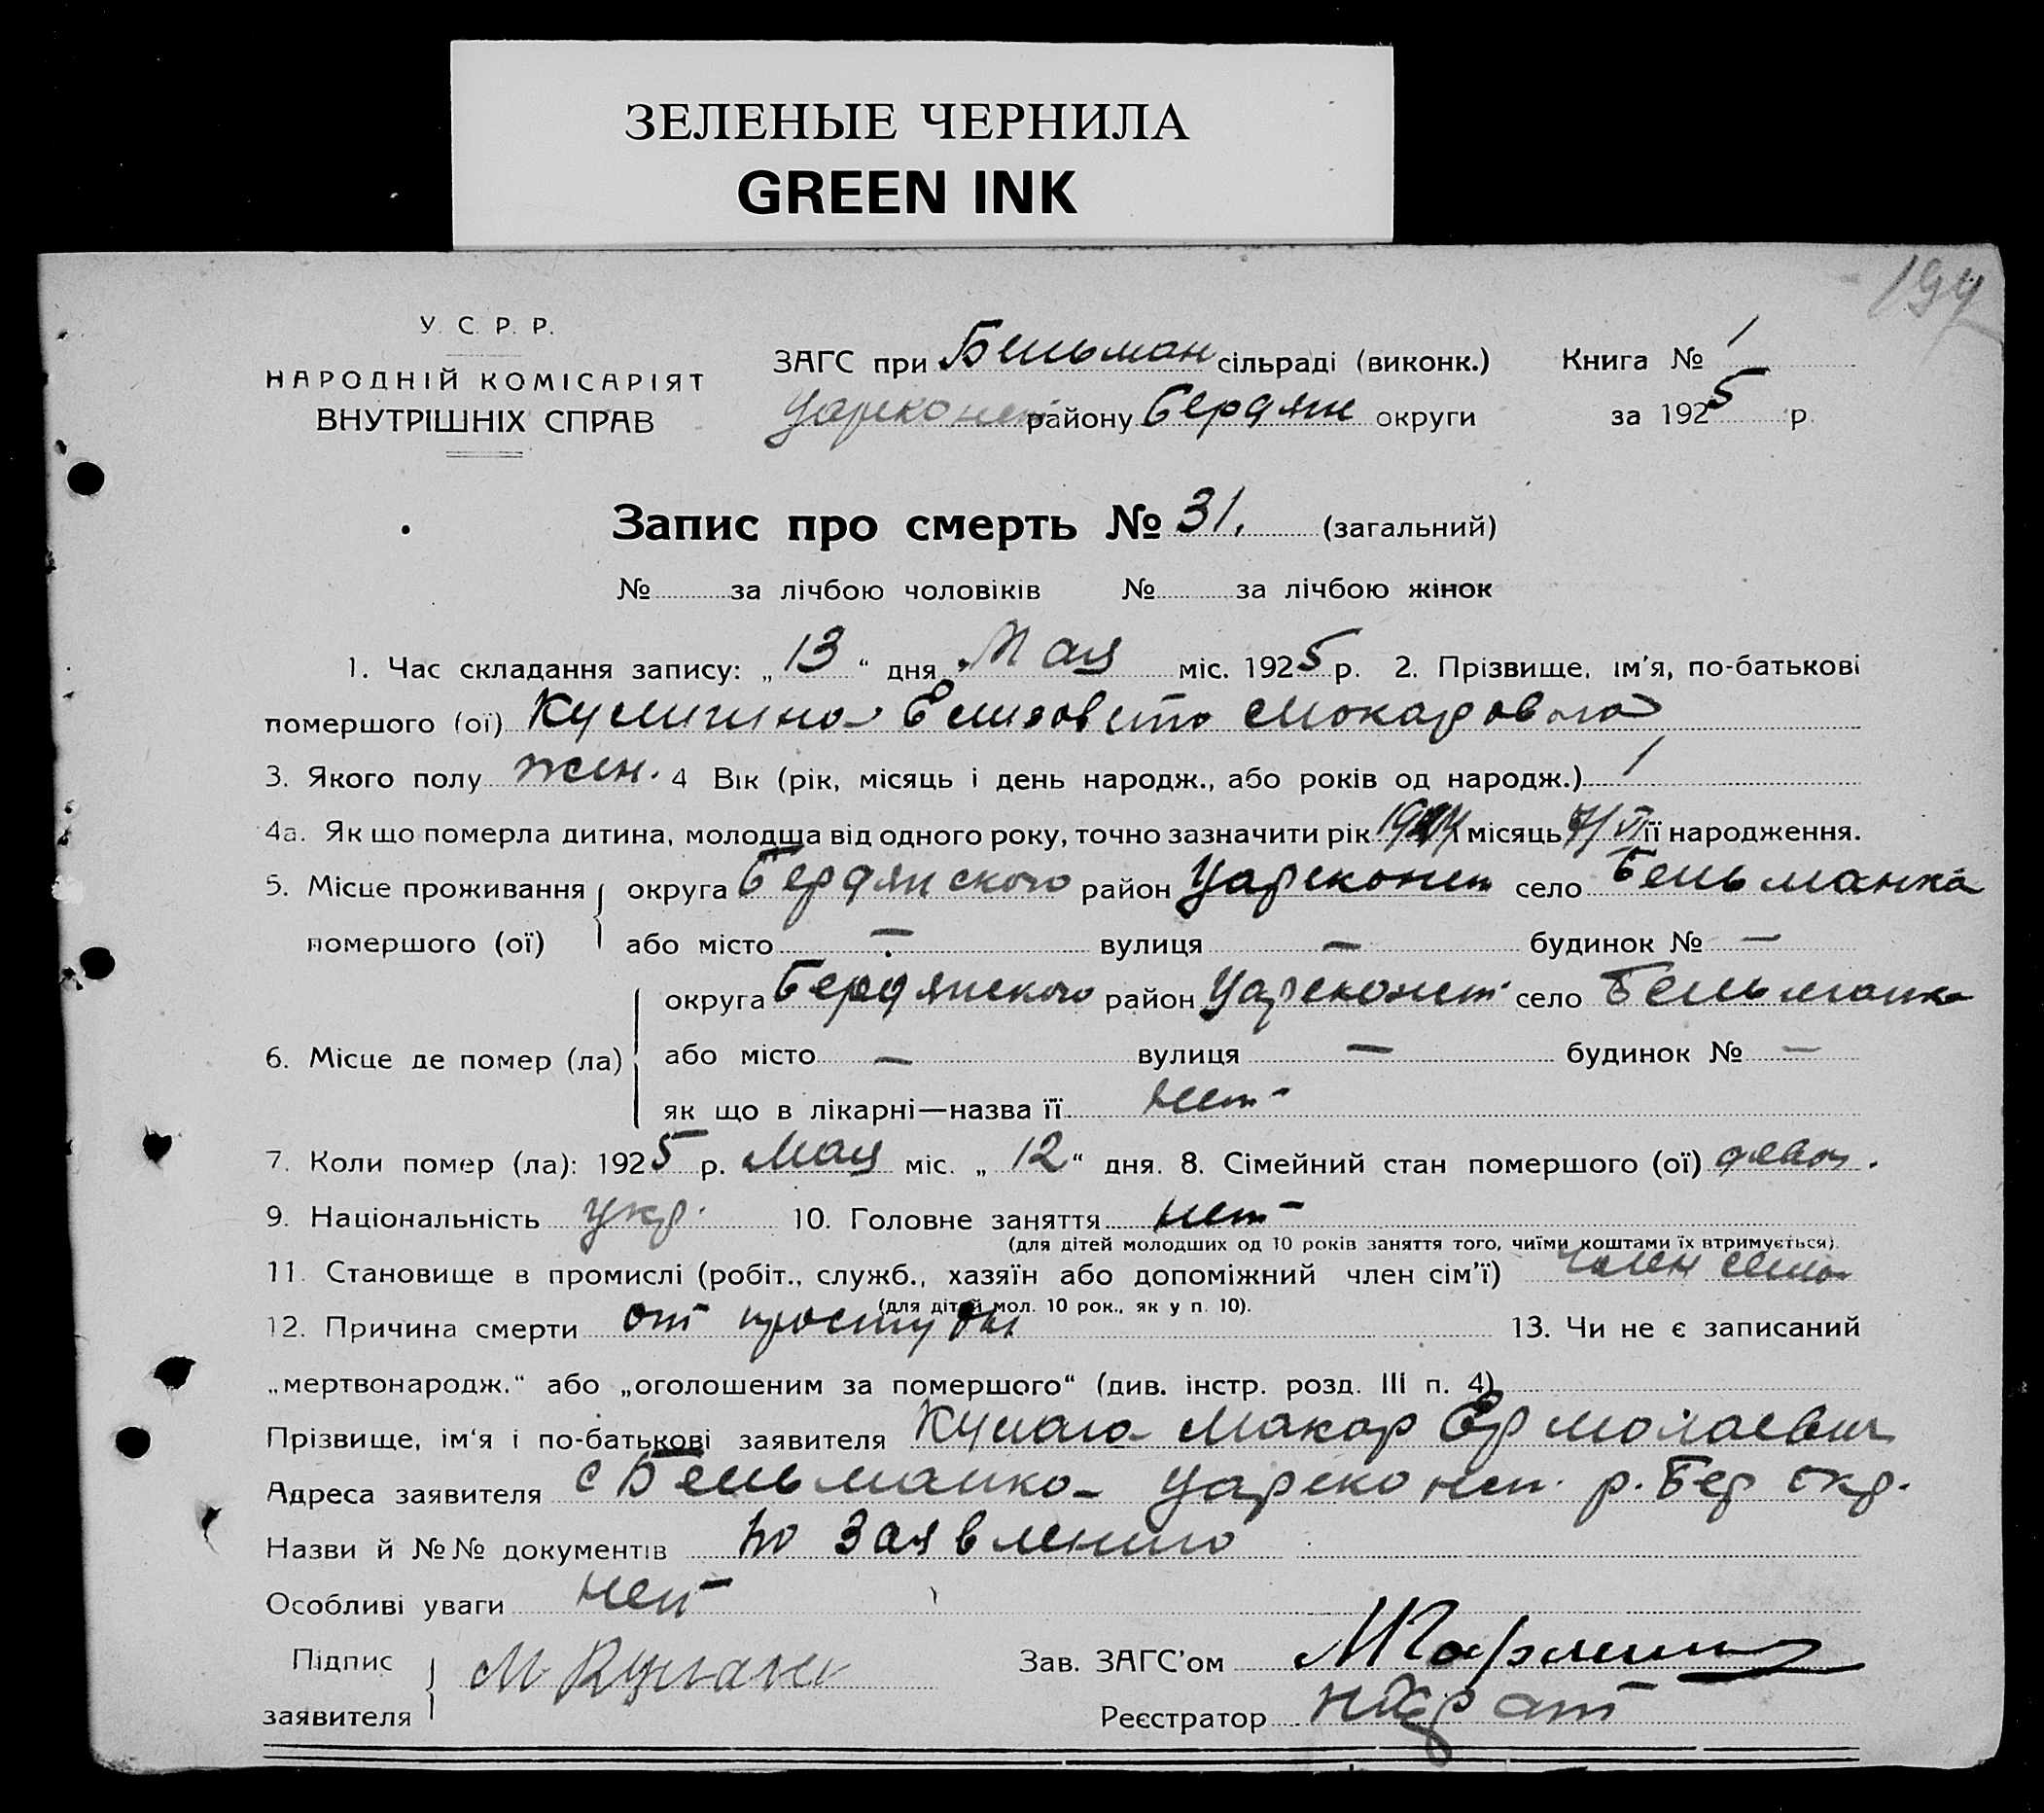 ЗЕЛЕНЫЕ ЧЕРНИЛА
GREEN INK
У. С. Р. Р.
НАРОДНІЙ КОМІСАРІЯТ
ВНУТРІШНІХ СПРАВ
ЗАГС при Бельман сільраді (виконк.) Книга № 1
Царекон району Бердян округи за 1925 р.
Запис про смерть № 31. (загальний)
№ за лічбою чоловіків № за лічбою жінок
1. Час складання запису: „13“ дня Мая міс. 1925 р. 2. Прізвище, ім'я, по-батькові
помершого (ої) Елизовета Мокаровна
3. Якого полу жен. 4 Вік (рік, місяць і день народж., або років од народж.) 1
4а. Як що померла дитина, молодща від одного року, точно зазначити рік місяць її народження.
5. Місце проживання округа Бердянского район Цареконст село Бельманка
помершого (ої) або місто — вулиця — будинок № —
округа Бердянского район Цареконст село Бельманка
6. Місце де помер (ла) або місто — вулиця — будинок № —
як що в лікарні—назва її нет
7. Коли помер (ла): 1925 р. Мая міс. „12“ дня. 8. Сімейний стан помершого (ої)
9. Національність укр. 10. Головне заняття нет
(для дітей молодших од 10 років заняття того, чиїми коштами їх втримується).
11. Становище в промислі (робіт., служб., хазяїн або допоміжний член сім'ї) член
(для дітей мол. 10 рок., як у п. 10).
12. Причина смерти от простуды 13. Чи не є записаний
„мертвонародж.“ або „оголошеним за помершого“ (див. інстр. розд. III п. 4)
Прізвище, ім'я і по-батькові заявителя Макар Ермолаевич
Адреса заявителя с Бельманка Царекон р. Бер окр.
Назви й №№ документів по заявлению
Особливі уваги нет
Підпис Зав. ЗАГС'ом
заявителя М Реєстратор